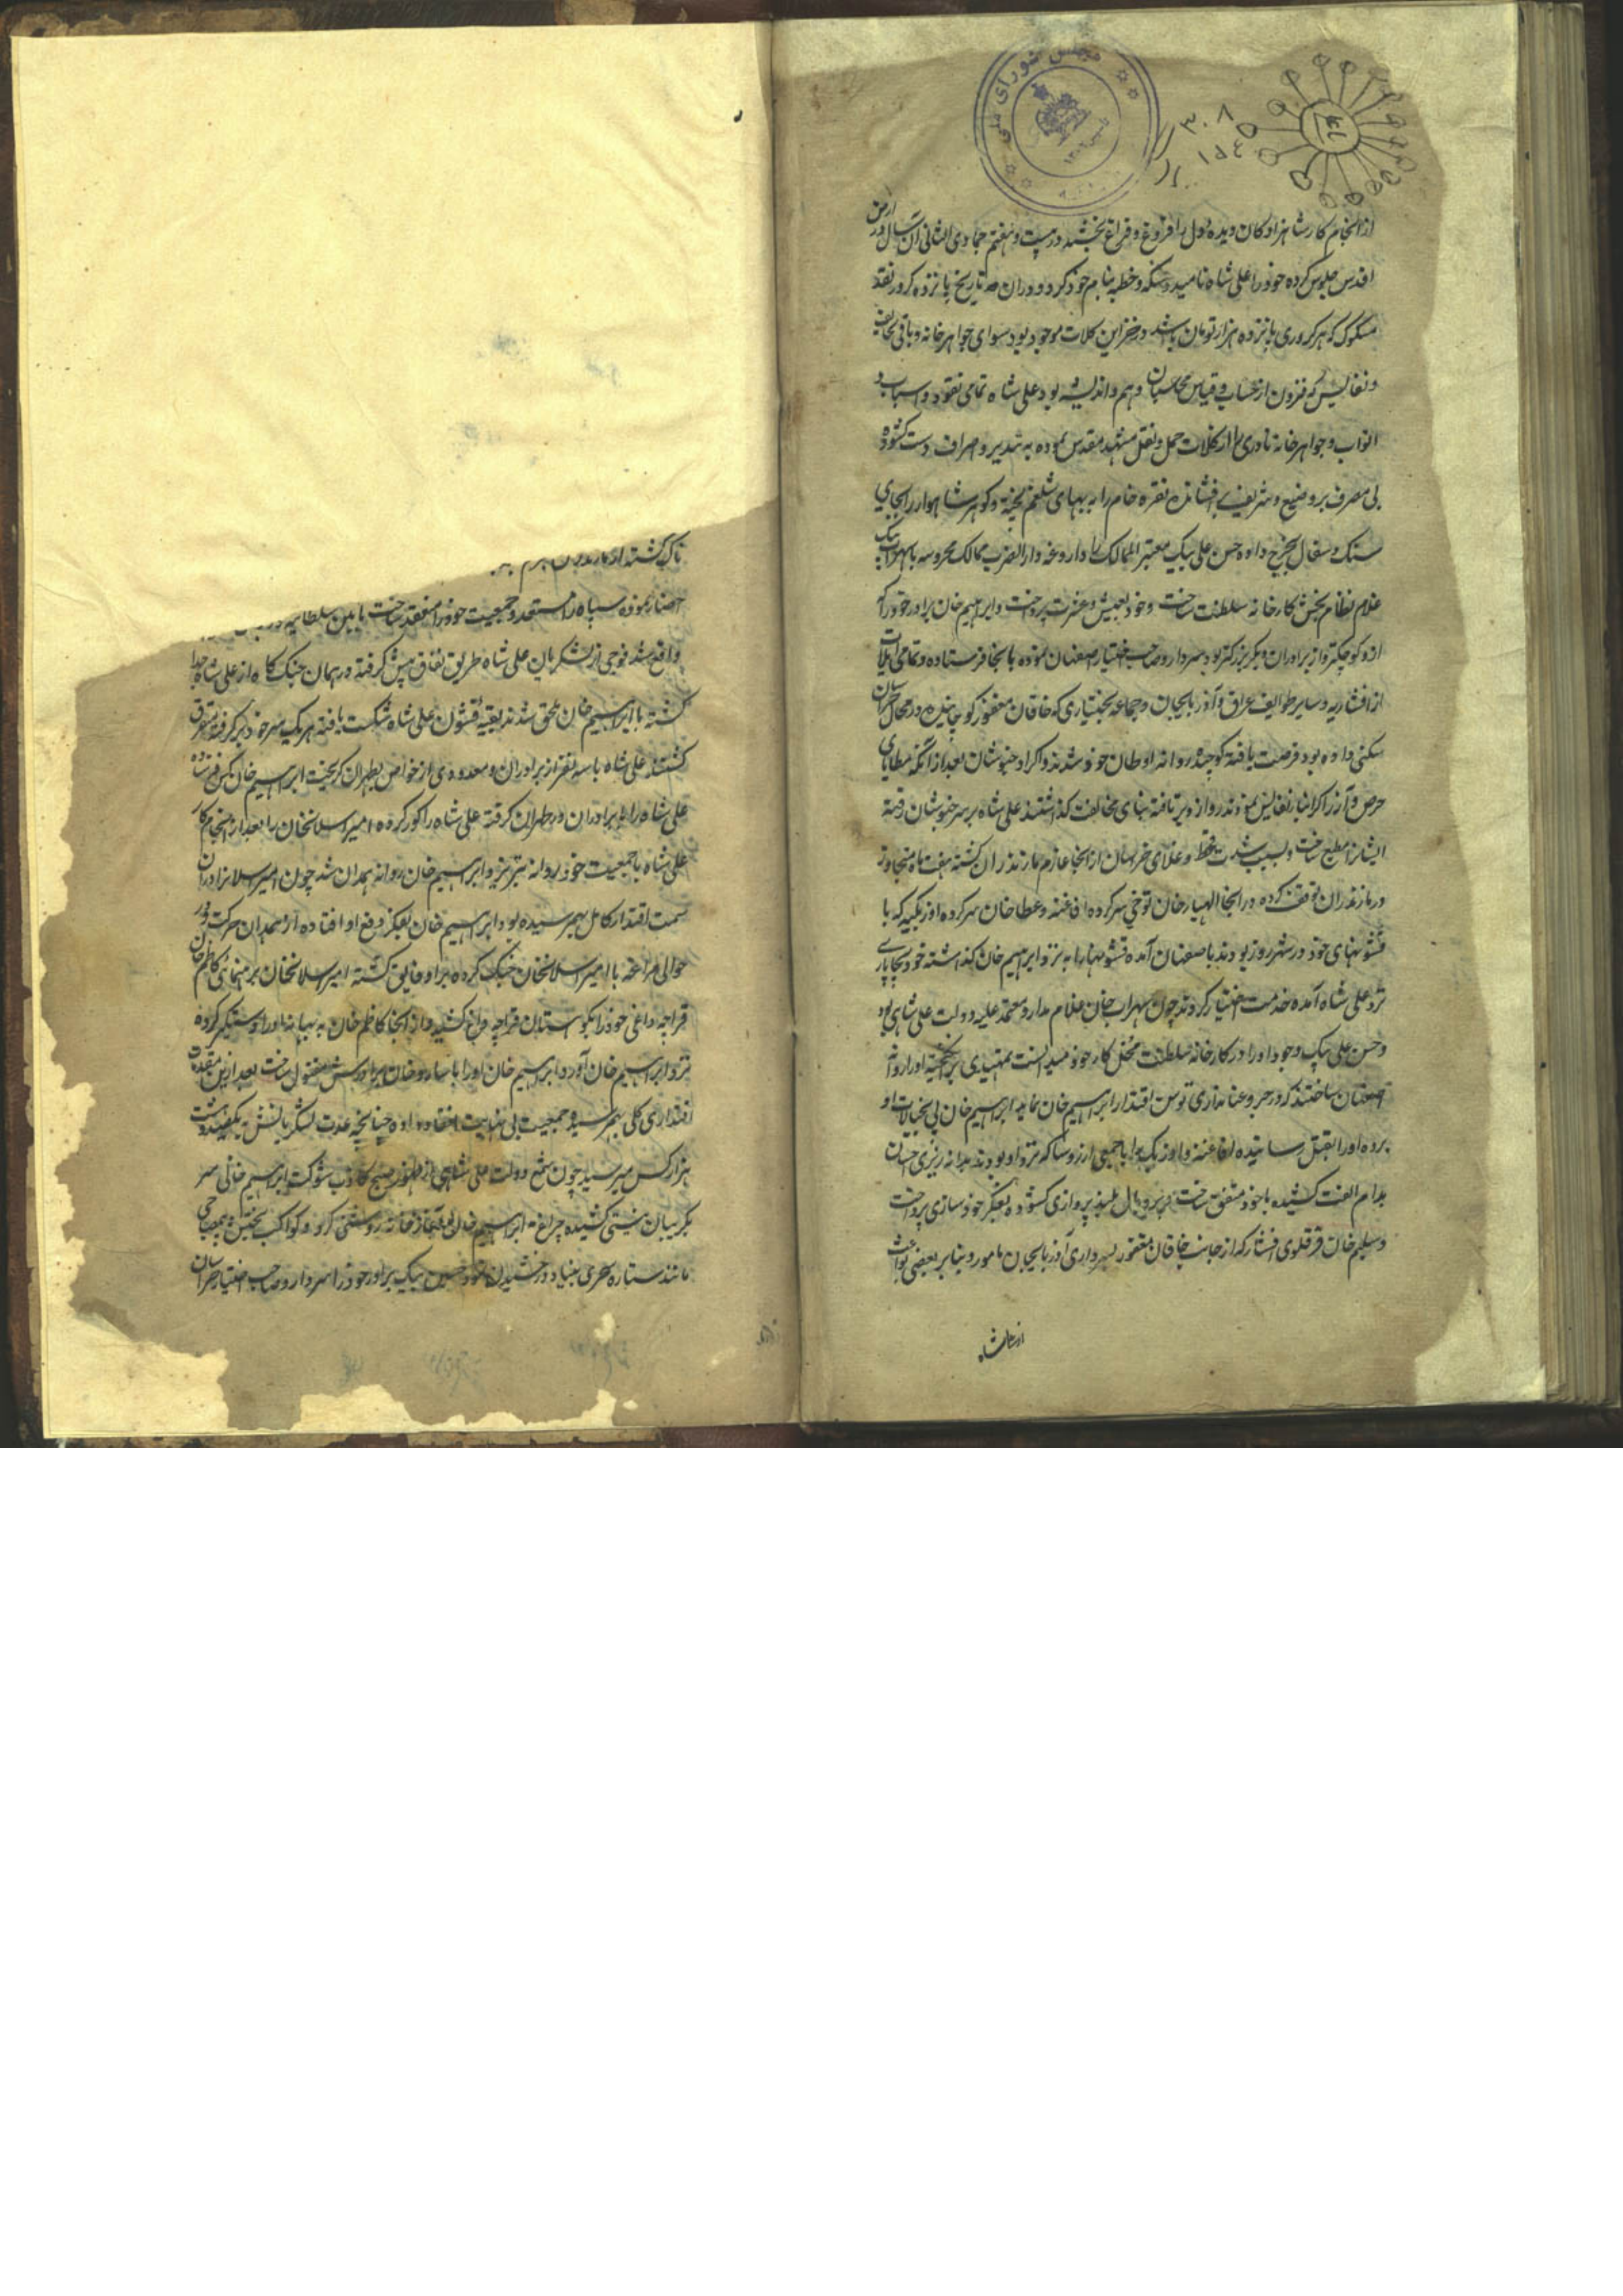 از انجام کار شاهزادکان دیده و دل را فروغ و فراغ بخشید در بیست و هفتم جمادی الثانی آن سال در ارض
اقدس جلوس کرده خود را علی شاه نامید و سکه و خطبه بنام خود کرد و در آن تاریخ پانزده کرور نقد
مسکوک که هر کروری پانزده هزار تومان باشد در خزاین کلات موجود بود سوای جواهر خانه و باقی تحایف
و نفایس که فزون از حساب و قیاس محاسبان وهم و اندیشه بود علی شاه تمامی نقود و اسباب و
اثواب و جواهر خانه نادری را از کلات حمل و نقل مشهد مقدس نموده به تبذیر و اصراف دست کشوده
بی مصرف بر وضیع و شریف افشانده نقره خام را به بهای شلغم پخته و کوهر شاهوار را بجای
سنک و سفال بخرج داده حسن علی بیک معیر الممالک را داروغه دار الضرب ممالک محروسه با سهراب بیک
غلام نظام بخش کارخانه سلطنت ساخت و خود بعیش و عشرت پرداخت و ابراهیم خان برادر خود را که
ازو کوچکتر و از برادران دیکر بزرکتر بود سردار و صاحب اختیار اصفهان نموده بانجا فرستاده و تمامی ایلات
از افشاریه و سایر طوایف عراق و آذربایجان و جماعه بختیاری که خاقان مغفور کوچانیده در محال خراسان
سکنی داده بود فرصت یافته کوچیده روانه اوطان خود شدند و اکراد خبوشان بعد از انکه مطایای
حرص و آز را کرانبار نفایس نمودند رو از و بر تافته بنای مخالفت کذاشتند علی شاه بر سر خبوشان رفته
ایشانرا مطیع ساخت و بسبب شدت قحط و غلای خراسان از انجا عازم مازندران کشته هفت ماه متجاوز
در مازندران توقف کرده در انجا الهیار خان توخی سرکرده افاغنه و عطا خان سرکرده اوزبکیه که با
قشونهای خود در شهر روز بودند باصفهان آمده قشونها را به نزد ابراهیم خان کذاشته خود بچاپاری
نزد علی شاه آمده خدمت اختیار کردند چون سهراب خان غلام مدار و معتمد علیه دولت علی شاهی بود
و حسن علی بیک وجود او را در کارخانه سلطنت مخل کار خود میدانست بتمهیدی بر انکیخته او را روانه
اصفهان ساختند که در جر و عنانداری توسن اقتدار ابراهیم خان نماید ابراهیم خان پی بخیالات او
برده او را بقتل رسانیده افاغنه و اوزبک را با جمعی از روسا که نزد او بودند بدانه ریزی احسان
بدام الفت کشیده با خود متفق ساخت پر و بال بلند پروازی کشوده بفکر خود سازی پرداخت
و سلیم خان قرقلوی افشار که از جانب خاقان مغفور بسرداری آذربایجان مامور و بنابر بعضی بواعث
از علیشاه
احضار نموده سپاه را مستعد و جمعیت خود را منعقد ساخت ما بین سلطانیه
واقع شد فوجی از لشکریان علی شاه طریق نفاق پیش کرفته در همان جنک کاه از علی شاه جدا
کشته با ابراهیم خان ملحق شدند بقیه قشون علی شاه شکست یافته هر یک سر خود بر کرفته متفرق
کشتند علی شاه با سه نفر از برادران و معدودی از خواص بطهران کریخت ابراهیم خان کس فرستاده
علی شاه را با برادران در طهران کرفته علی شاه را کور کرده امیر اسلانخان را بعد از انجام کار
علی شاه با جمعیت خود روانه تبریز و ابراهیم خان روانه همدان شد چون امیر اسلانرا در آن
سمت اقتدار کامل بهم رسیده بود ابراهیم خان بفکر دفع او افتاده از همدان حرکت و در
حوالی مراغه با امیر اسلانخان جنک کرده بر او فایق کشته امیر اسلانخان برهنمائی کاظم خان
قراجه داغی خود را بکوهستان قراجه داغ کشید و از انجا کاظم خان به بهانه او را دستکیر کرده
نزد ابراهیم خان آورد ابراهیم خان او را با سارو خان برادرش مقتول ساخت بعد از این مقدمه
اقتداری کلی بهم رسید و جمعیت بی نهایت چنانچه عدت لشکریانش بیکصد و بیست
هزار کس میرسید چون شمع دولت علی شاهی از ظهور صبح کاذب شوکت ابراهیم خانی سر
بکریبان نیستی کشیده چراغ ابراهیم آغاز خانه روشنی کرد و کواکب بختش
مانند ستاره سحری بنیاد درخشیدن نمود حسین بیک برادر خود را سردار و صاحب اختیار خراسان